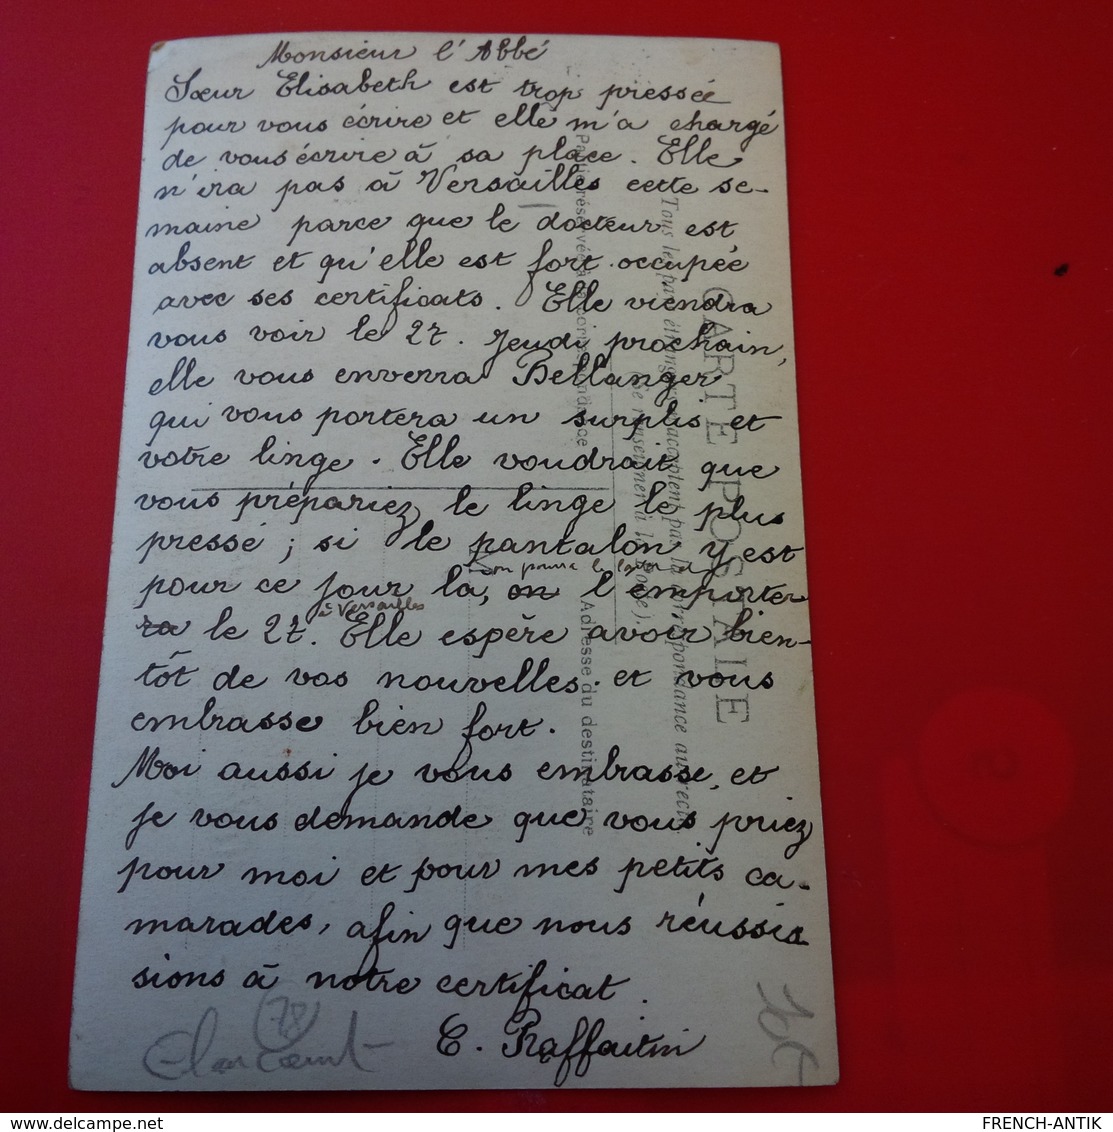 Monsieur l'Abbé
Sœur Elisabeth est trop pressée
pour vous écrire et elle m'a chargé
de vous écrire à sa place. Elle
n'ira pas à Versailles cette se-
maine parce que le docteur est
absent et qu'elle est fort occupée
avec ses certificats. Elle viendra
vous voir le 27. Jeudi prochain,
elle vous enverra Bellanger
qui vous portera un surplis et
votre linge. Elle voudrait que
vous prépariez le linge le plus
pressé ; si le pantalon y est
pour ce jour là, on l'emporter
ra le 27. à Versailles Elle espère avoir bien-
tôt de vos nouvelles et vous
embrasse bien fort.
Moi aussi je vous embrasse, et
je vous demande que vous priez
pour moi et pour mes petits ca-
marades, afin que nous réussis
sions à notre certificat.
E. Raffaitin
(78)
CARTE POSTALE
Tous les pays étrangers n'acceptent pas la correspondance au recto
(Se renseigner à la Poste).
Partie réservée à la correspondance
Adresse du destinataire
FRENCH-ANTIK